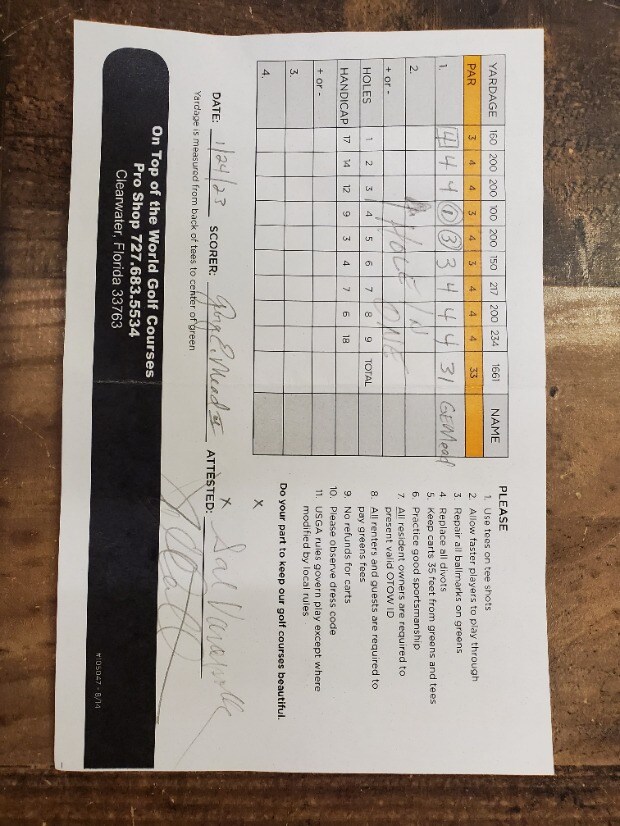 YARDAGE 160 200 200 100 200 150 217 200 234 1661 NAME
PAR 3 4 4 3 4 3 4 4 4 33
1. 4 4 4 1 3 3 4 4 4 31 GEMead
2. HOLE IN ONE
+ or -
HOLES 1 2 3 4 5 6 7 8 9 TOTAL
HANDICAP 17 14 12 9 3 4 7 6 18
+ or -
3.
4.
DATE: 1/24/23 SCORER: E. Mead II ATTESTED: X Sal
Yardage is measured from back of tees to center of green
PLEASE
1. Use tees on tee shots
2. Allow faster players to play through
3 Repair all ballmarks on greens
4 Replace all divots
5 Keep carts 35 feet from greens and tees
6. Practice good sportsmanship
7. All resident owners are required to
present valid OTOW ID
8. All renters and guests are required to
pay greens fees
9. No refunds for carts
10. Please observe dress code
11. USGA rules govern play except where
modified by local rules
Do your part to keep our golf courses beautiful.
X
On Top of the World Golf Courses
Pro Shop 727.683.5534
Clearwater, Florida 33763
#105047 - 8/14